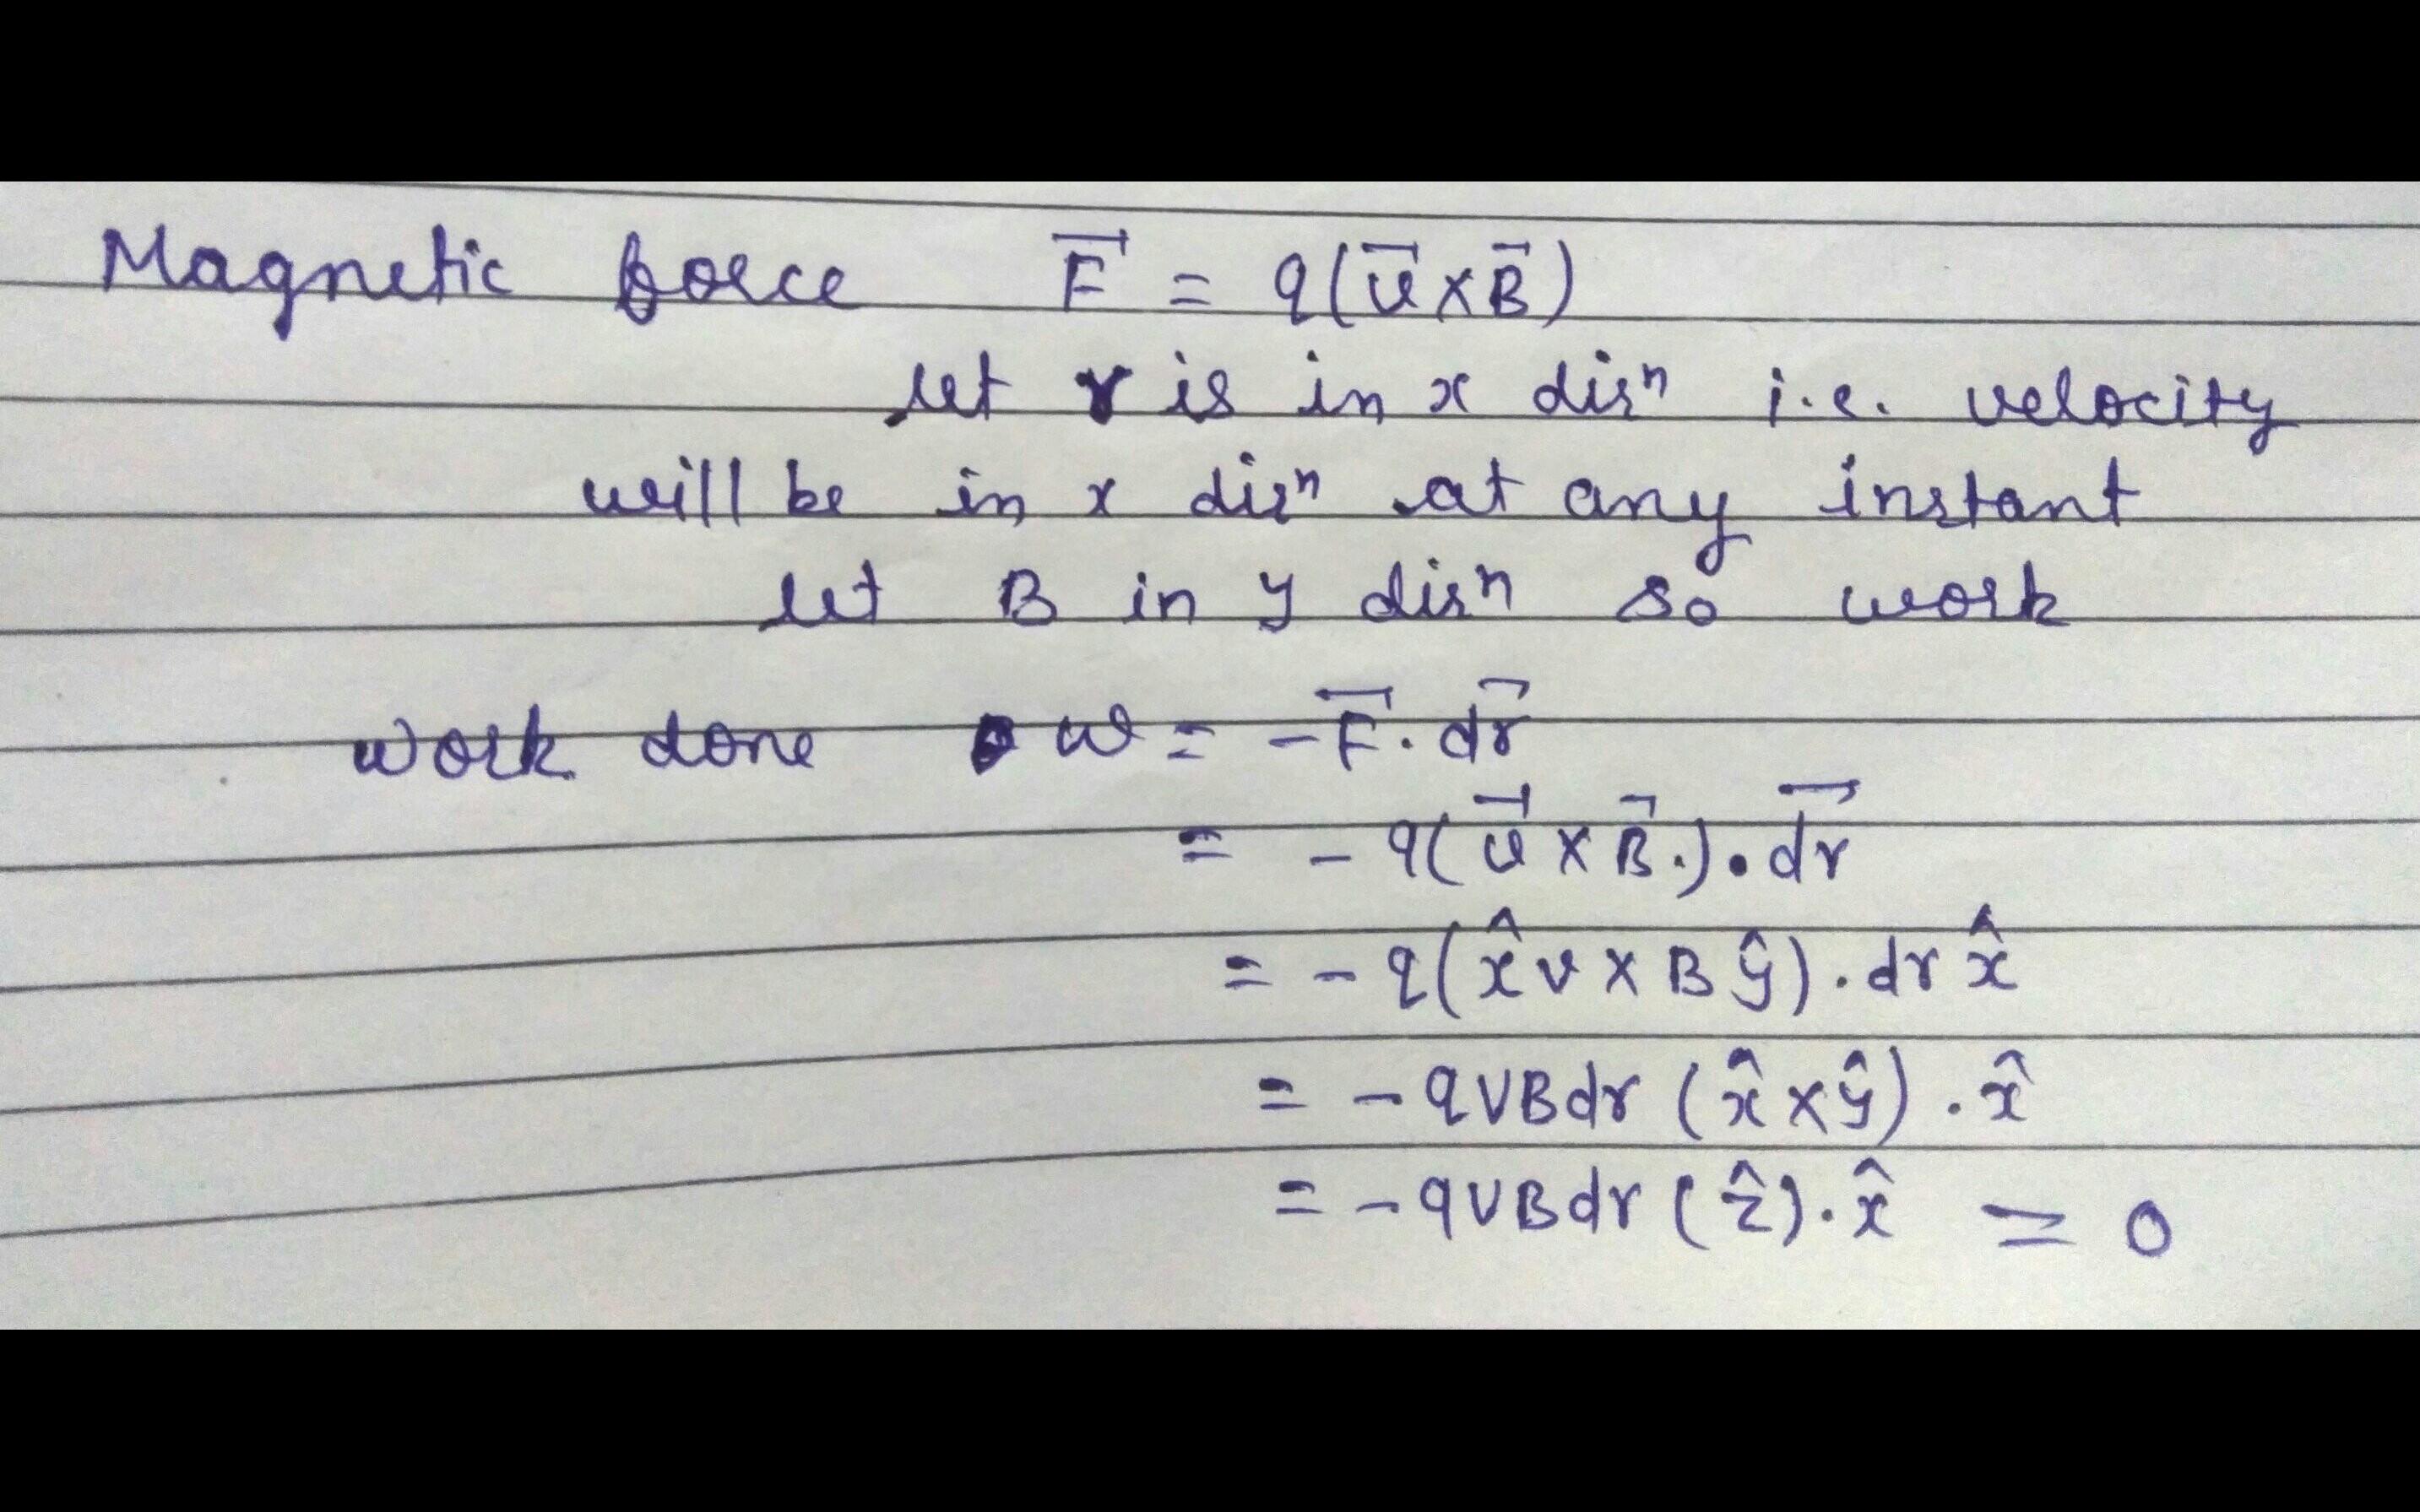 Magnetic force F⃗ = q(v⃗×B⃗)
let r is in x dirⁿ i.e. velocity
will be in x dirⁿ at any instant
let B in y dirⁿ so work
work done w = -F⃗.dr⃗
= -q(v⃗×B⃗.).dr⃗
= -q(x̂v×Bŷ).dr x̂
= -qVBdr (x̂×ŷ).x̂
= -qVBdr (ẑ).x̂ = 0